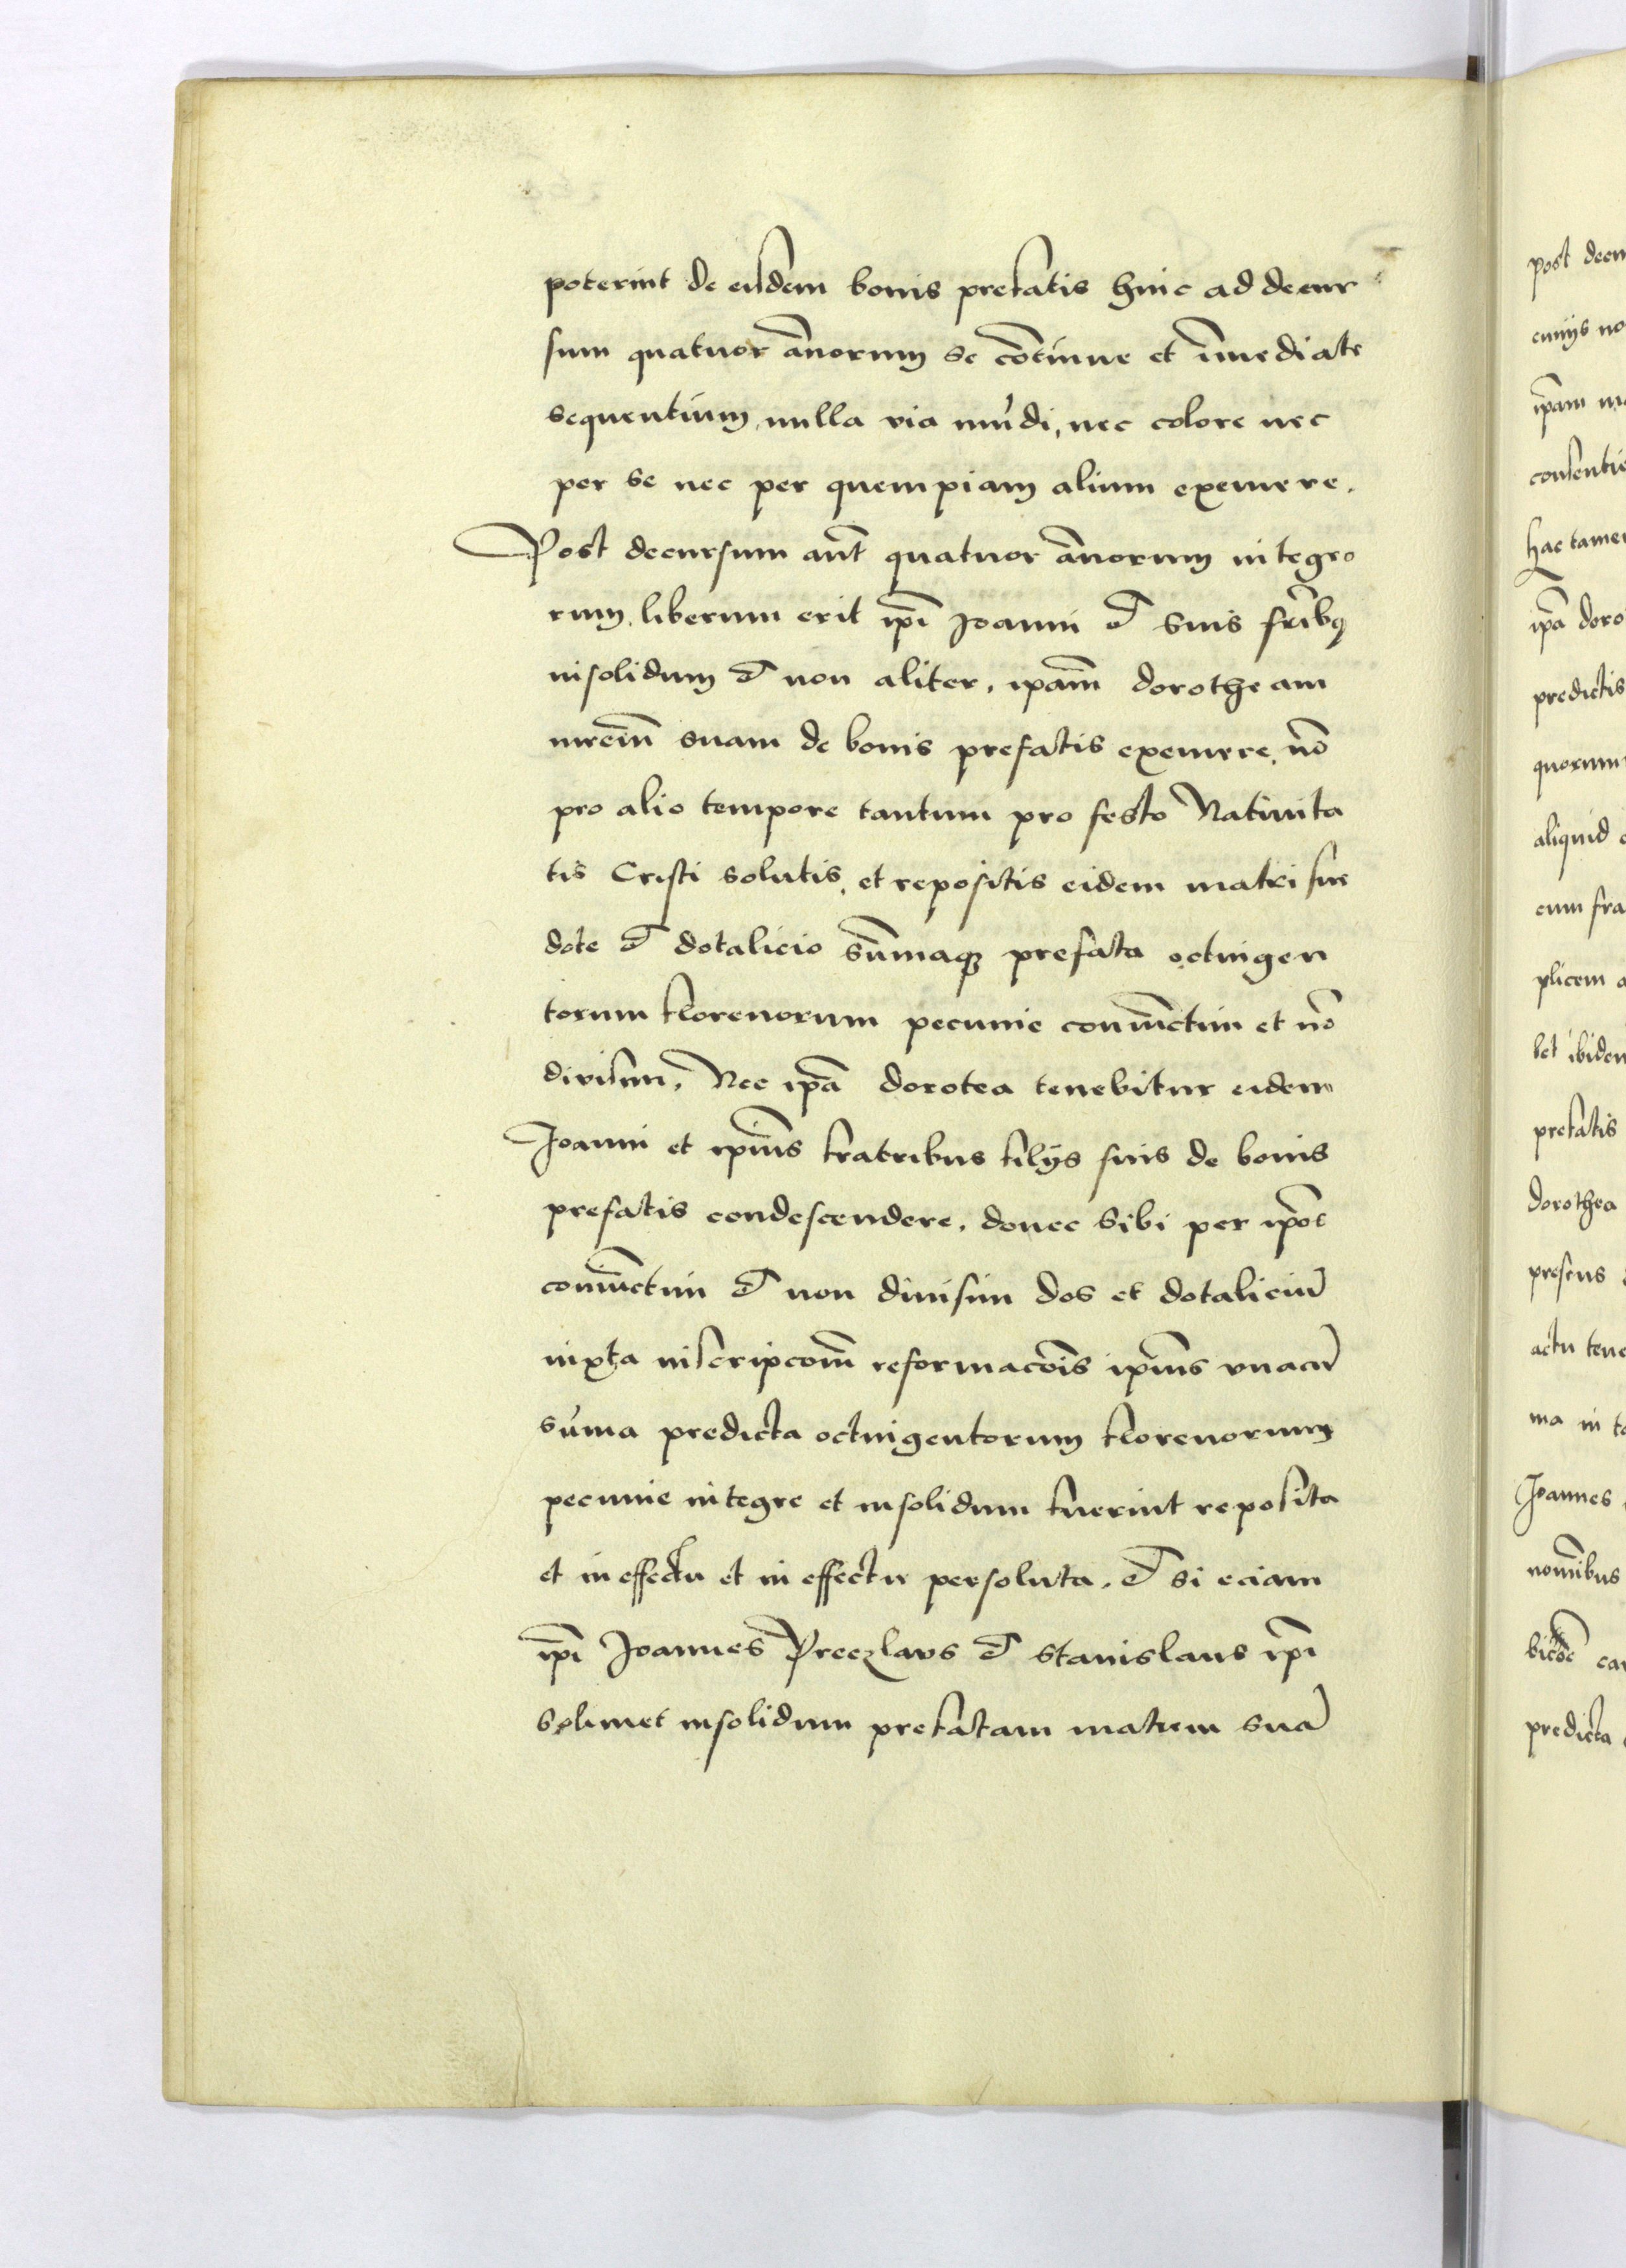 poterint de eisdem bonis prefatis hinc ad decur
sum quatuor ānorum se cōtinue et īmediate
sequentium, nulla via mūdi, nec colore nec
per se nec per quempiam alium eximere.
Post decursum aūt quatuor ānorum integro
rum, liberum erit ip̄i Joanni et suis fr̄ibꝫ
insolidum et non aliter, ip̄am dorotheam
mr̄em suam de bonis prefatis eximere, nō
pro alio tempore tantum pro festo Nativita
tis Cristi solutis, et repositis eidem matri sue
dote et dotalicio sūmaqꝫ prefata octingen
torum florenorum pecunie coniūctim et nō
divisim, Nec ip̄a dorotea tenebitur eidem
Joanni et ip̄ius fratribus filijs suis de bonis
prefatis condescendere, donec sibi per ip̄os
coniūctim et non divisim dos et dotaliciū
iuxta inscripcōm reformacōis ip̄ius unacū
sūma predicta octingentorum florenorum
pecunie integre et insolidum fuerint reposita
et in effectu et in effectu persoluta. et si eciam
ip̄i Joannes Preczlavs et Stanislaus ip̄i
solimet insolidum prefatam matrem suā
post decu
cuiijs no
ip̄am ma
consentie
hac tamen
ip̄a doro
predictis
quorum
aliquid
cum fra
plicem
let ibidem
prefatis
dorothea
presens
actu tene
ma in
Joannes
nomībus
predicta